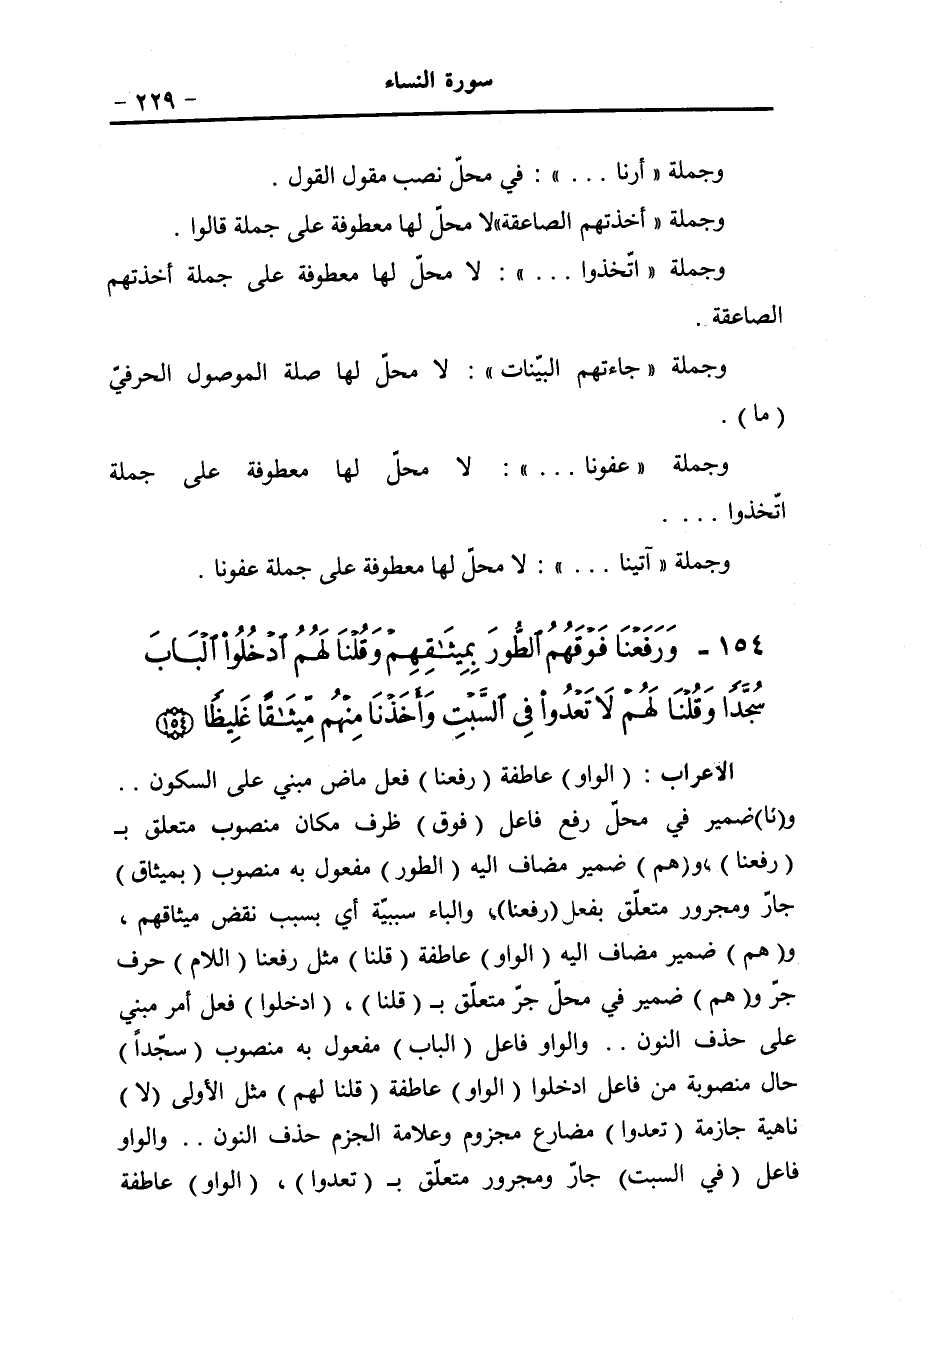 سورة النساء
- ٢٢٩ -
وجملة « أرنا . . . » : في محلّ نصب مقول القول .
وجملة « أخذتهم الصاعقة»لا محلّ لها معطوفة على جملة قالوا .
وجملة « اتّخذوا . . . » : لا محلّ لها معطوفة على جملة أخذتهم
الصاعقة .
وجملة « جاءتهم البيّنات » : لا محلّ لها صلة الموصول الحرفيّ
( ما ) .
وجملة « عفونا . . . » : لا محلّ لها معطوفة على جملة
اتّخذوا . . . .
وجملة « آتينا . . . » : لا محلّ لها معطوفة على جملة عفونا .
١٥٤ - وَرَفَعْنَا فَوْقَهُمُ ٱلطُّورَ بِمِيثَٰقِهِمْ وَقُلْنَا لَهُمُ ٱدْخُلُوا۟ ٱلْبَابَ
سُجَّدًا وَقُلْنَا لَهُمْ لَا تَعْدُوا۟ فِى ٱلسَّبْتِ وَأَخَذْنَا مِنْهُم مِّيثَٰقًا غَلِيظًا ﴿١٥٤﴾
الاعراب : ( الواو) عاطفة ( رفعنا) فعل ماض مبني على السكون . .
و(نا)ضمير في محلّ رفع فاعل ( فوق ) ظرف مكان منصوب متعلق بـ
( رفعنا ) ،و( هم ) ضمير مضاف اليه ( الطور ) مفعول به منصوب ( بميثاق )
جارّ ومجرور متعلّق بفعل(رفعنا)، والباء سببيّة أي بسبب نقض ميثاقهم ،
و( هم ) ضمير مضاف اليه ( الواو ) عاطفة ( قلنا ) مثل رفعنا ( اللام ) حرف
جرّ و( هم ) ضمير في محلّ جرّ متعلّق بـ ( قلنا ) ، ( ادخلوا ) فعل أمر مبني
على حذف النون . . والواو فاعل ( الباب ) مفعول به منصوب ( سجّداً )
حال منصوبة من فاعل ادخلوا ( الواو ) عاطفة ( قلنا لهم ) مثل الأولى (لا )
ناهية جازمة ( تعدوا ) مضارع مجزوم وعلامة الجزم حذف النون . . والواو
فاعل ( في السبت) جارّ ومجرور متعلّق بـ ( تعدوا ) ، ( الواو ) عاطفة